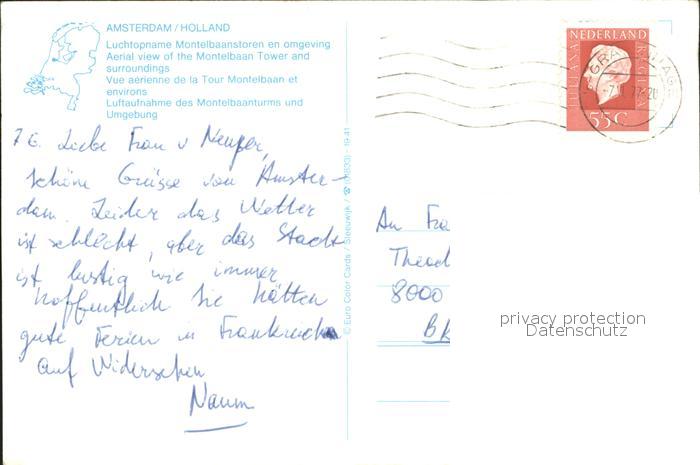 AMSTERDAM / HOLLAND
Luchtopname Montelbaanstoren en omgeving
Aerial view of the Montelbaan Tower and
surroundings
Vue aérienne de la Tour Montelbaan et
environs
Luftaufnahme des Montelbaanturms und
Umgebung
7.6. Liebe Frau v
schöne Grüsse von Amster-
dam. Leider das Wetter
ist schlecht, aber das Stadt
ist lustig wie immer
hoffentlich Sie hätten
gute Ferien in Frankreich
auf Widersehen
Naum
© Euro Color Cards / Sleeuwijk / ☎ 19-41
NEDERLAND
JULIANA
REGINA
55C
'S-GRAVENHAGE
An Fra
Theod
8000
privacy protection
Datenschutz